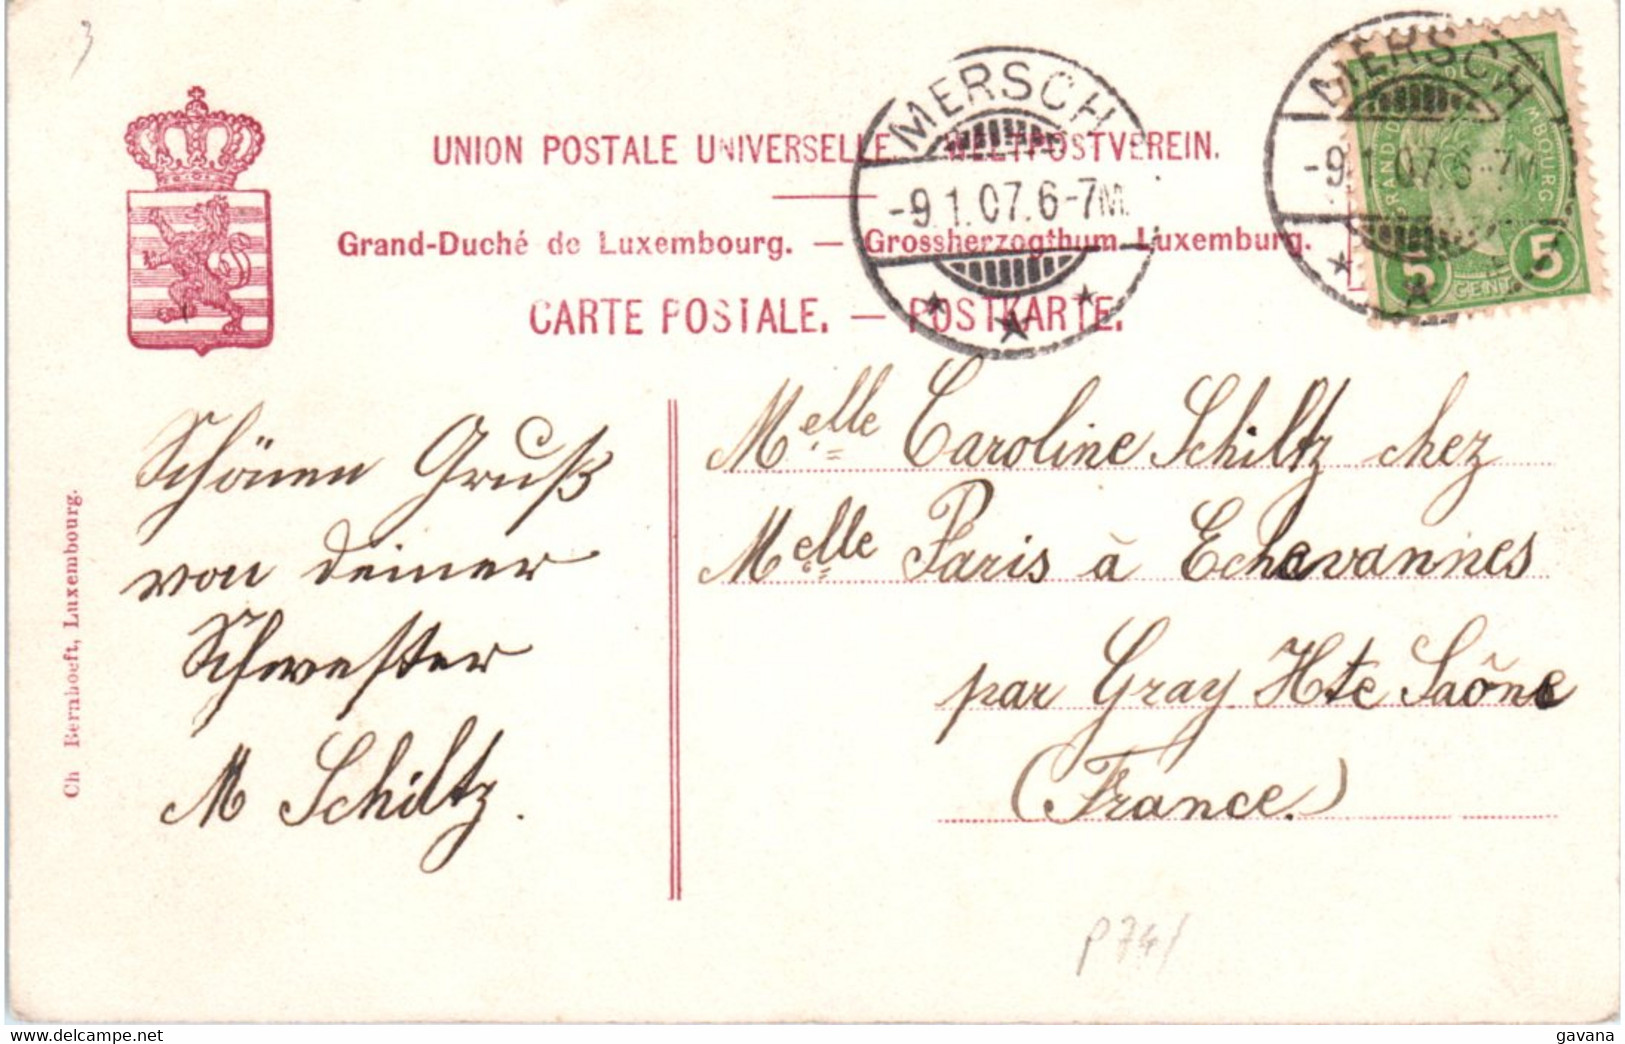 3
UNION POSTALE UNIVERSELLE. WELTPOSTVEREIN.
Grand-Duché de Luxembourg. — Grossherzogthum Luxemburg.
CARTE POSTALE. — POSTKARTE.
MERSCH
-9.1.07.6-7M.
MERSCH
-9.1.07.6-7M.
5 CENT. 5
Schönen Gruß
von deiner
Schwester
M Schiltz.
Melle Caroline Schiltz chez
Melle Paris à Echevannes
par Gray Hte Saône
(France.)
Ch Bernhoeft, Luxembourg.
P 74/
delcampe.net
gavana